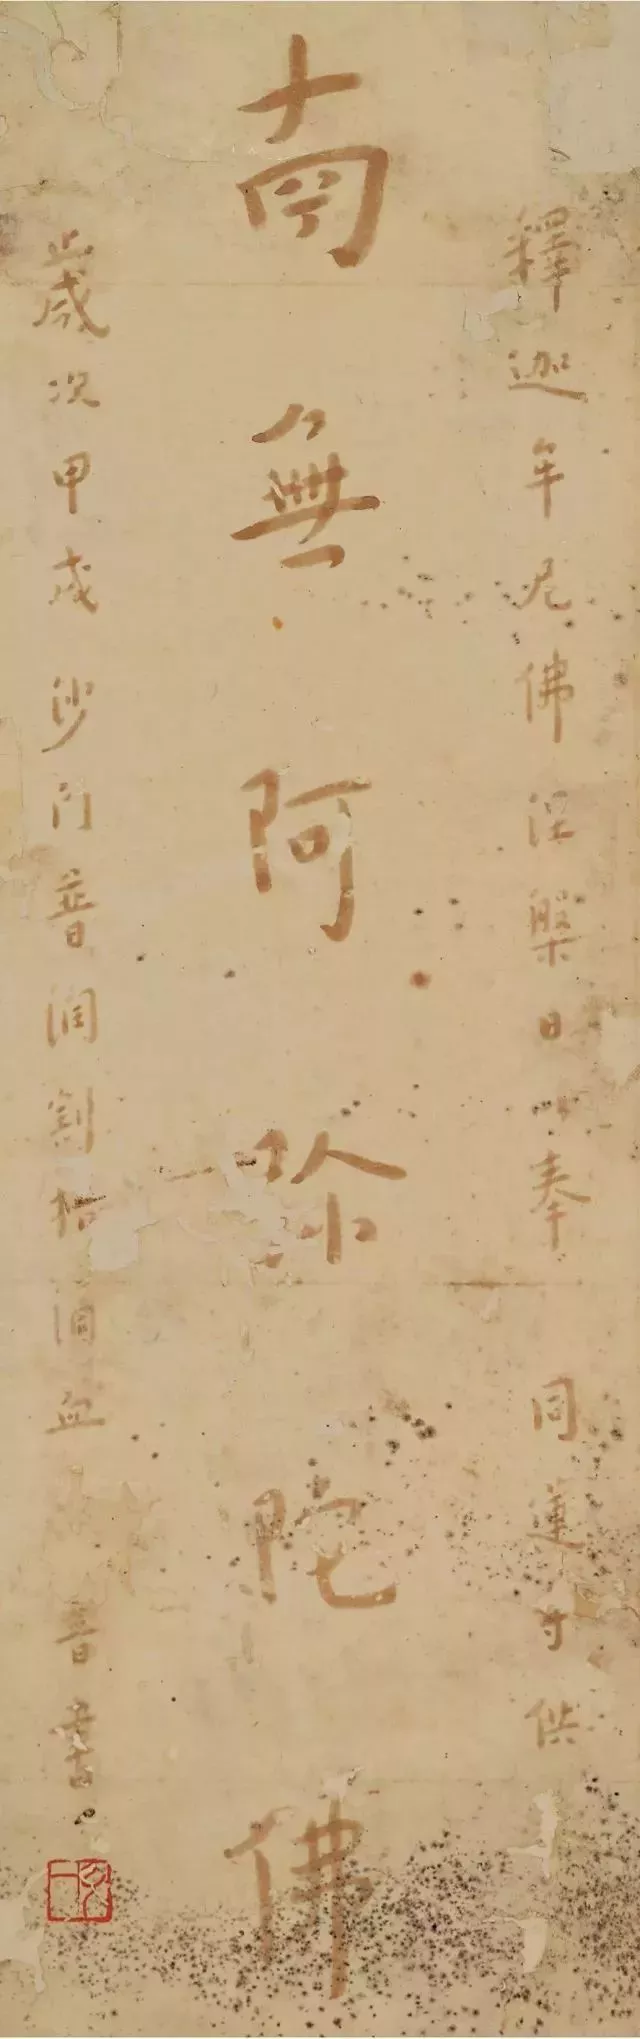 釋迦牟尼佛涅槃日奉同蓮寺供
南無阿彌陀佛
歲次甲戌沙門普潤割指瀝血音書